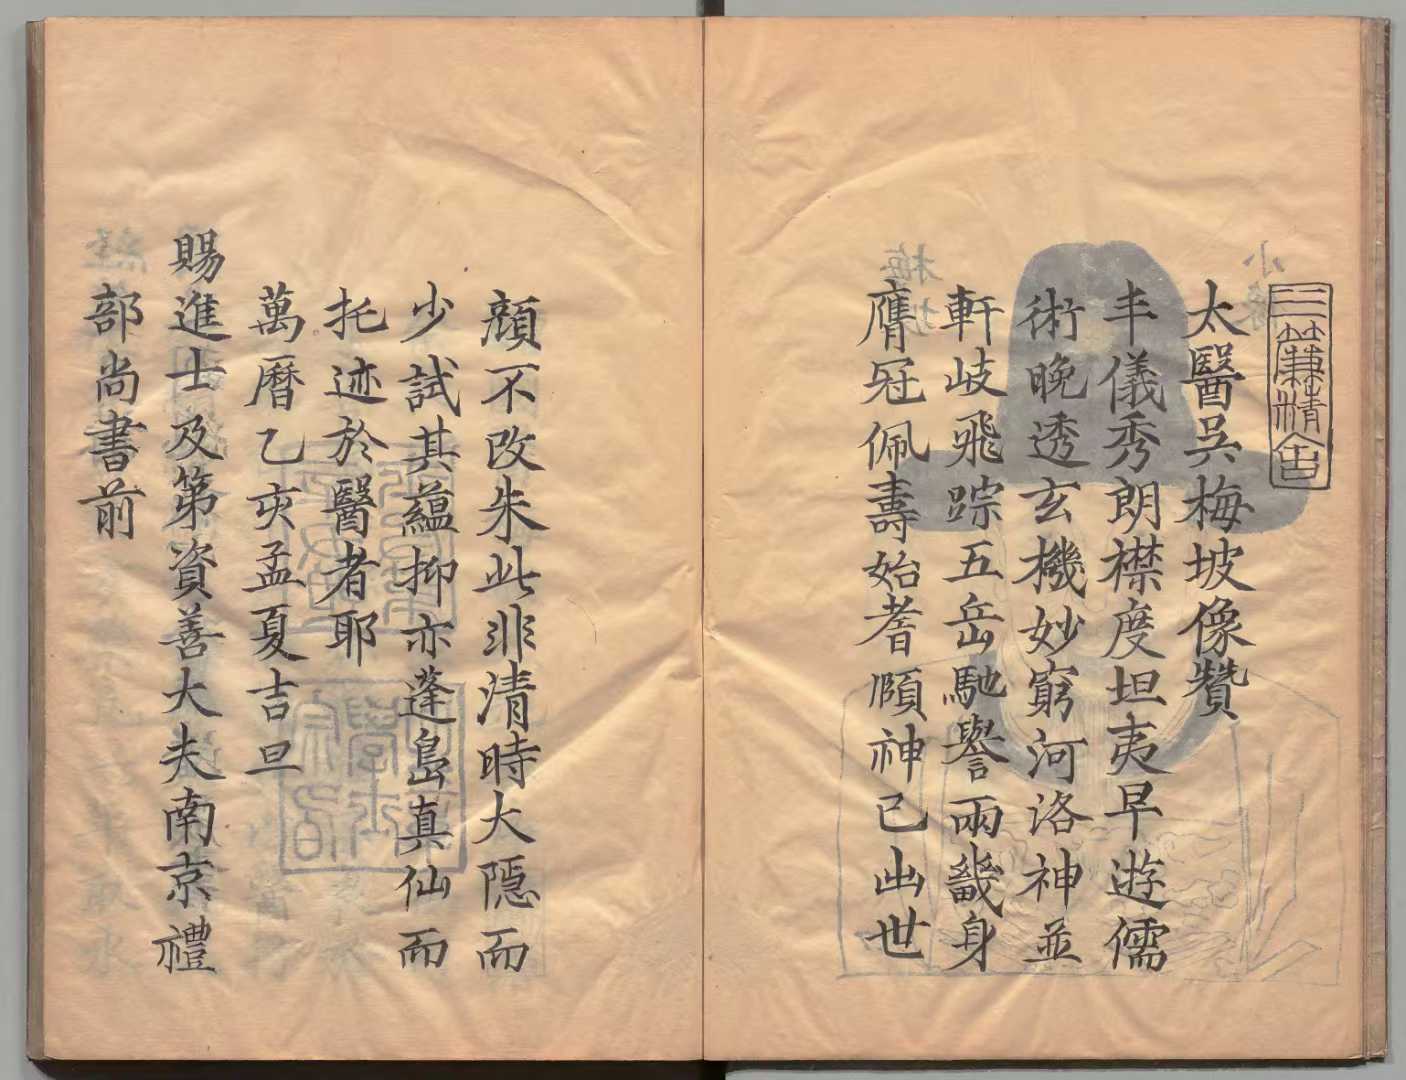 三簾精舍
太醫吳梅坡像贊
丰儀秀朗襟度坦夷早遊儒
術晚透玄機妙窮河洛神並
軒岐飛踪五岳馳譽兩畿身
膺冠佩壽始耆頤神已出世
顏不改朱此非清時大隱而
少試其蘊抑亦蓬島真仙而
托迹於醫者耶
萬曆乙亥孟夏吉旦
賜進士及第資善大夫南京禮
部尚書前